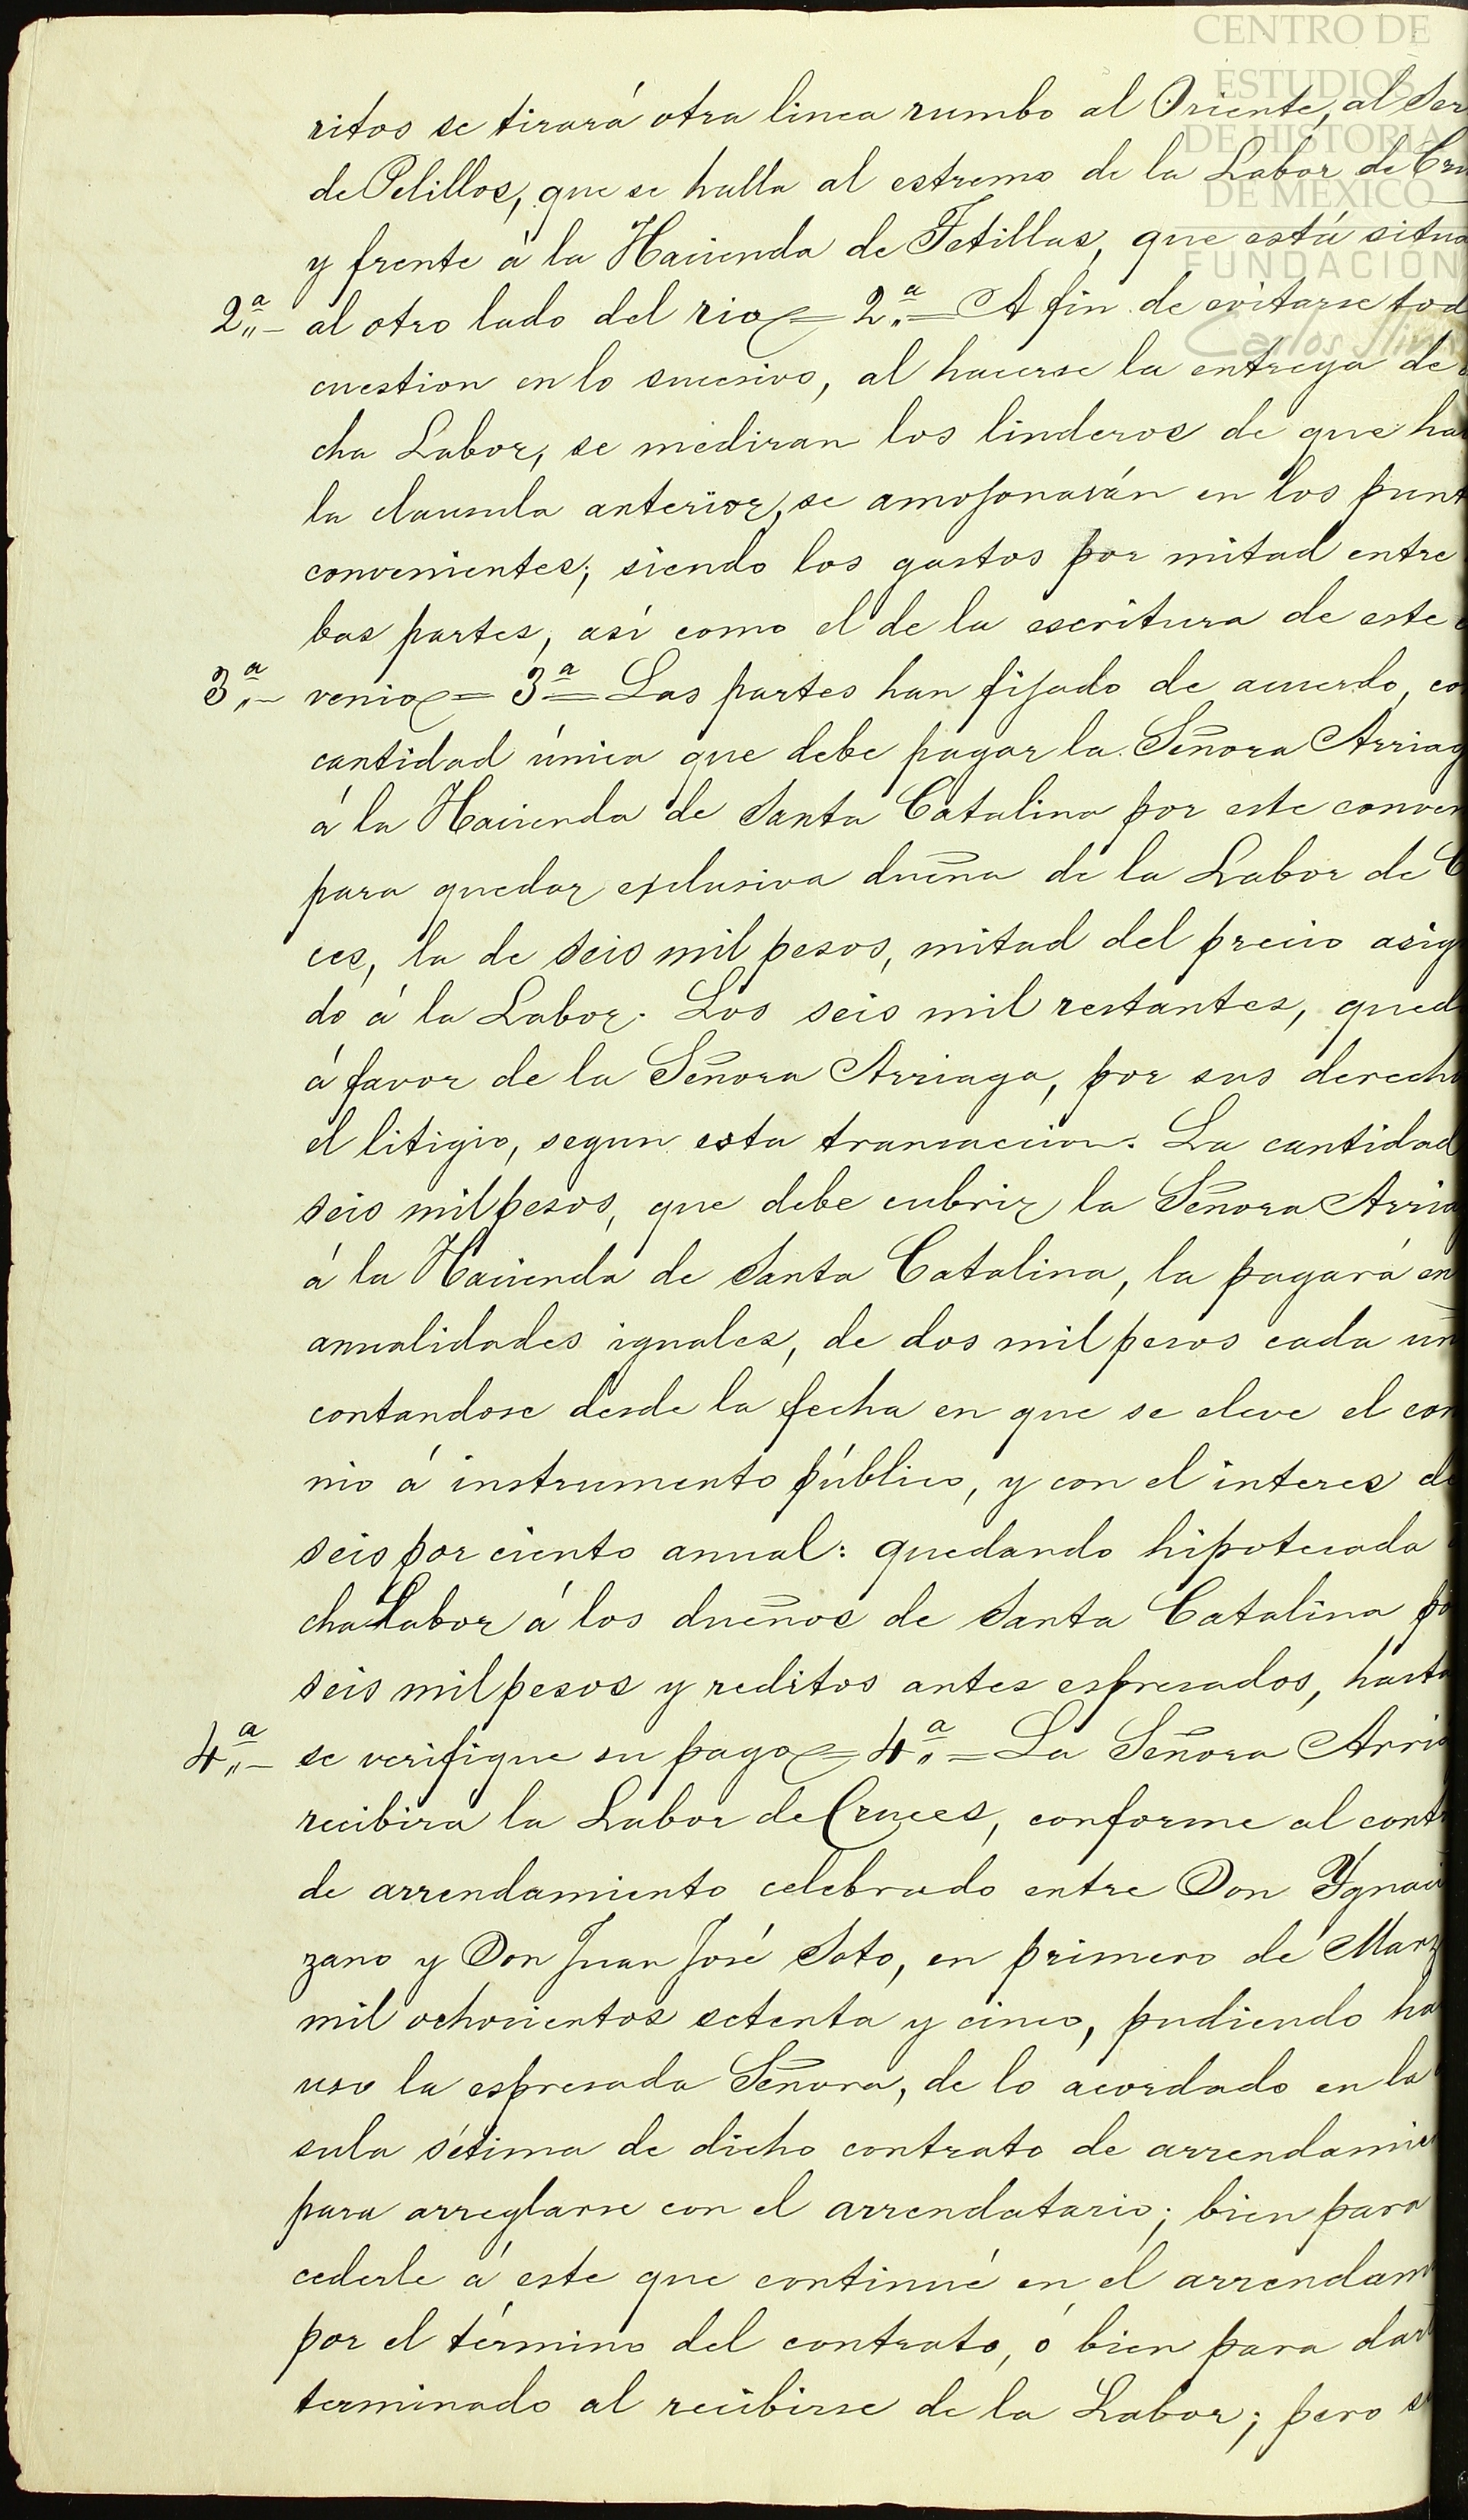 CENTRO DE
ESTUDIOS
DE HISTORIA
DE MEXICO
FUNDACION
Carlos Slim
ritos se tirará otra linea rumbo al Oriente, al
de Pelillos, que se halla al estremo de la Labor de
y frente á la Hacienda de Tetillas, que está situa
2.a al otro lado del rio = 2.a = A fin de evitarse tod
cuestion en lo sucesivo, al hacerse la entrega de
cha Labor, se mediran los linderos de que ha
la clausula anterior, se amojonarán en los punt
convenientes; siendo los gastos por mitad entre
bas partes, así como el de la escritura de este
3.a venio = 3.a = Las partes han fijado de acuerdo, co
cantidad única que debe pagar la Señora Arriag
á la Hacienda de Santa Catalina por este conven
para quedar esclusiva dueña de la Labor de C
ces, la de seis mil pesos, mitad del precio asig
do á la Labor. Los seis mil restantes, qued
á favor de la Señora Arriaga, por sus derech
el litigio, segun esta transaccion. La cantidad
seis mil pesos, que debe cubrir la Señora Arria
á la Hacienda de Santa Catalina, la pagará en
anualidades iguales, de dos mil pesos cada un
contandose desde la fecha en que se eleve el con
nio á instrumento público, y con el interes de
seis por ciento anual: quedando hipotecada
cha Labor á los dueños de Santa Catalina po
seis mil pesos y reditos antes espresados, hasta
4.a se verifique su pago = 4.a = La Señora Arria
recibira la Labor de Cruces, conforme al contr
de arrendamiento celebrado entre Don Ygnaci
zano y Don Juan José Soto, en primero de Marz
mil ochocientos setenta y cinco, pudiendo ha
uso la espresada Señora, de lo acordado en la
sula sétima de dicho contrato de arrendamien
para arreglarse con el arrendatario; bien para
cederle á este que continué en el arrendam
por el término del contrato, ó bien para darl
terminado al recibirse de la Labor; pero